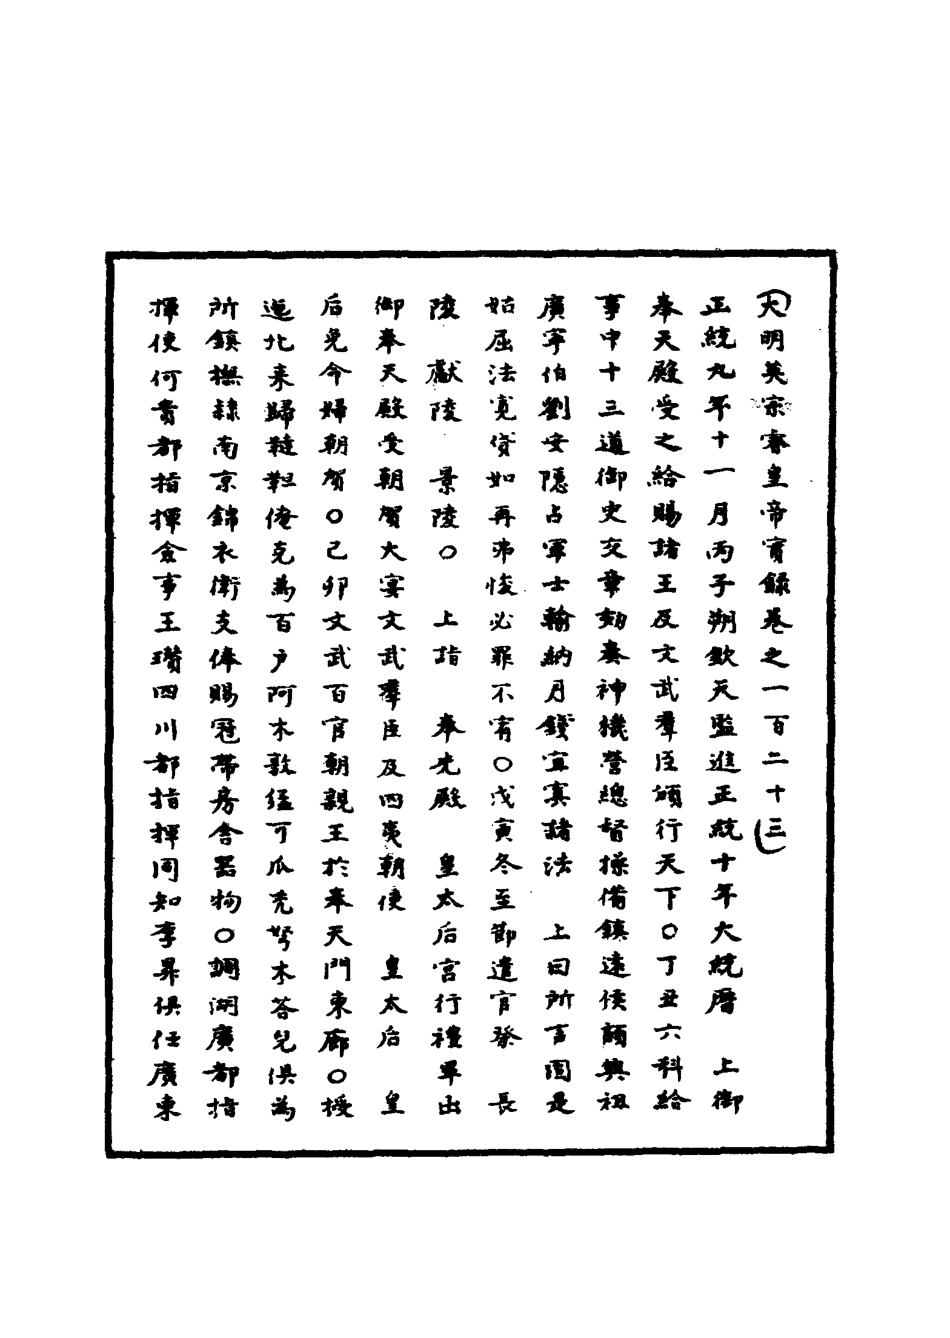 大明英宗睿皇帝實錄卷之一百二十三
正統九年十一月丙子朔欽天監進正統十年大統曆　上御
奉天殿受之給賜諸王及文武羣臣頒行天下○丁丑六科給
事中十三道御史交章劾奏神機營總督操備鎮遠侯顧興祖
廣寧伯劉安隱占軍士輸納月錢宜寘諸法　上曰所言固是
姑屈法寬貸如再弗悛必罪不宥○戊寅冬至節遣官祭　長
陵　獻陵　景陵○　上詣　奉先殿　皇太后宮行禮畢出
御奉天殿受朝賀大宴文武羣臣及四夷朝使　皇太后　皇
后免命婦朝賀○己卯文武百官朝親王於奉天門東廊○授
迤北來歸韃靼俺克為百戶阿木敦猛可瓜禿孥木荅兒俱為
所鎮撫隸南京錦衣衛支俸賜冠帶房舍器物○調湖廣都指
揮使何貴都指揮僉事王瓚四川都指揮同知李昇俱任廣東